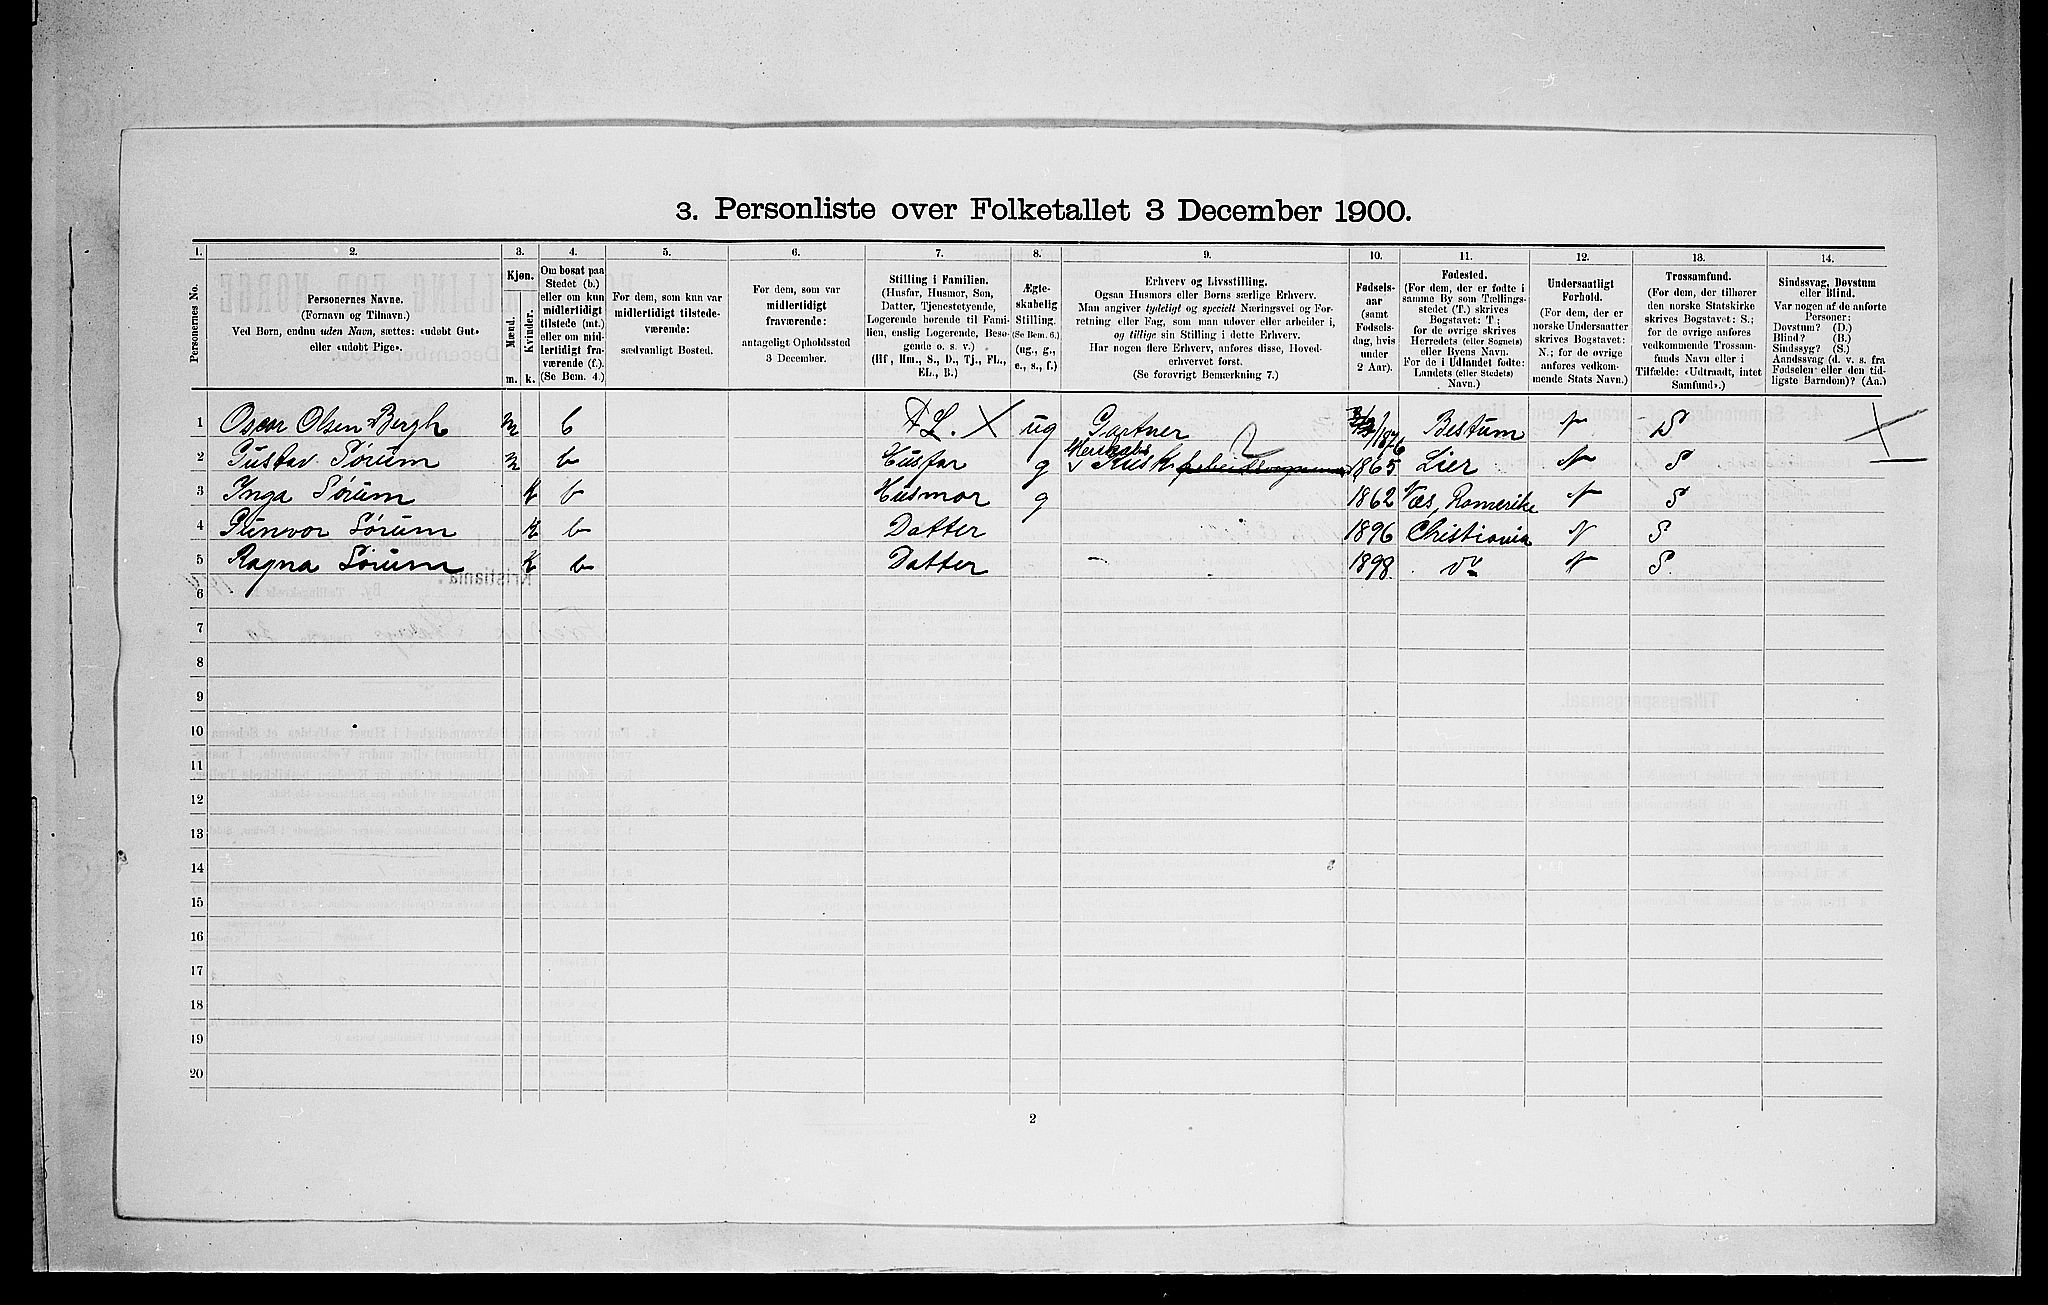 3. Personliste over Folketallet 3 December 1900.
1. 2. 3. 4. 5. 6. 7. 8. 9. 10. 11. 12. 13. 14.
Personernes No.
Personernes Navne.
(Fornavn og Tilnavn.)
Ved Børn, endnu uden Navn, sættes: «udobt Gut»
eller «udobt Pige».
Kjøn.
Mænd.
Kvinder.
m. k.
Om bosat paa
Stedet (b.)
eller om kun
midlertidigt
tilstede (mt.)
eller om mid-
lertidigt fra-
værende (f.).
(Se Bem. 4.)
For dem, som kun var
midlertidigt tilstede-
værende:
sædvanligt Bosted.
For dem, som var
midlertidigt
fraværende:
antageligt Opholdssted
3 December.
Stilling i Familien.
(Husfar, Husmor, Søn,
Datter, Tjenestetyende,
Logerende hørende til Fami-
lien, enslig Logerende, Besø-
gende o. s. v.)
(Hf, Hm., S., D., Tj., FL.,
EL., B.)
Ægte-
skabelig
Stilling.
(Se Bem. 6.)
(ug., g.,
e., s., f.)
Erhverv og Livsstilling.
Ogsaa Husmors eller Børns særlige Erhverv.
Man angiver tydeligt og specielt Næringsvei og For-
retning eller Fag, som man udover eller arbeider i,
og tillige sin Stilling i dette Erhverv.
Har nogen flere Erhverv, anføres disse, Hoved-
erhvervet først.
(Se forøvrigt Bemærkning 7.)
Fødsels-
aar
(samt
Fødsels-
dag, hvis
under
2 Aar).
Fødested.
(For dem, der er fødte i
samme By som Tællings-
stedet (T.) skrives
Bogstavet: T.;
for de øvrige skrives
Herredets (eller Sognets)
eller Byens Navn.
For de i Udlandet fødte:
Landets (eller Stedets)
Navn.)
Undersaatligt
Forhold.
(For dem, der er
norske Undersaatter
skrives Bogstavet:
N.; for de øvrige
anføres vedkom-
mende Stats Navn.)
Trossamfund.
(For dem, der tilhører
den norske Statskirke
skrives Bogstavet: S.;
for de øvrige anføres
vedkommende Trossam-
funds Navn eller i
Tilfælde: «Udtraadt, intet
Samfund».)
Sindssvag, Døvstum
eller Blind.
Var nogen af de anførte
Personer:
Døvstum? (D.)
Blind? (B.)
Sindssyg? (S.)
Aandssvag (d. v. s. fra
Fødselen eller den tid-
ligste Barndom)? (Aa.)
1 Oscar Olsen Bergh m b L. X ug Gartner 1876 Bestum N S X
2 Gustav Sørum m b Husfar g Kusk 1865 Lier N S
3 Inga Sørum K b Husmor g 1862 Næs, Romerike N S
4 Gunvor Sørum K b Datter 1896 Christiania N S
5 Ragna Sørum K b Datter - 1898 do N S.
6
7
8
9
10
11
12
13
14
15
16
17
18
19
20
2